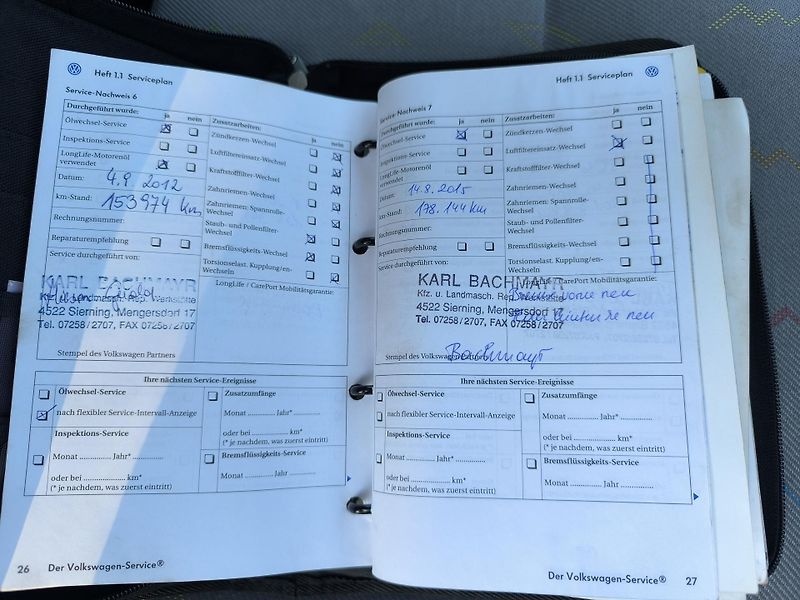 Heft 1.1 Serviceplan
Service-Nachweis 6
Durchgeführt wurde: ja nein
Ölwechsel-Service
Inspektions-Service
LongLife-Motorenöl
verwendet
Datum: 4.9. 2012
km-Stand: 153974 km
Rechnungsnummer:
Reparaturempfehlung
Service durchgeführt von:
KARL BACHMAYR
Kfz. u. Landmasch. Rep. Werkstätte
4522 Sierning, Mengersdorf 17
Tel. 07258/2707, FAX 07258/2707
Stempel des Volkswagen Partners
Zusatzarbeiten: ja nein
Zündkerzen-Wechsel
Luftfiltereinsatz-Wechsel
Kraftstofffilter-Wechsel
Zahnriemen-Wechsel
Zahnriemen: Spannrolle-
Wechsel
Staub- und Pollenfilter-
Wechsel
Bremsflüssigkeits-Wechsel
Torsionselast. Kupplung/en-
Wechseln
LongLife / CarePort Mobilitätsgarantie:
Ihre nächsten Service-Ereignisse
Ölwechsel-Service
nach flexibler Service-Intervall-Anzeige
Inspektions-Service
Monat ............ Jahr* ............
oder bei .................... km*
(* je nachdem, was zuerst eintritt)
Zusatzumfänge
Monat ............ Jahr* ............
oder bei ............ km*
(* je nachdem, was zuerst eintritt)
Bremsflüssigkeits-Service
Monat ............ Jahr ............
26 Der Volkswagen-Service®
Heft 1.1 Serviceplan
Service-Nachweis 7
Durchgeführt wurde: ja nein
Ölwechsel-Service
Inspektions-Service
LongLife-Motorenöl
verwendet
Datum: 14.8. 2015
km-Stand: 178.144 km
Rechnungsnummer:
Reparaturempfehlung
Service durchgeführt von:
KARL BACHMAYR
Kfz. u. Landmasch. Rep. Werkstätte
4522 Sierning, Mengersdorf 17
Tel. 07258/2707, FAX 07258/2707
Bachmayr
Stempel des Volkswagen Partners
Zusatzarbeiten: ja nein
Zündkerzen-Wechsel
Luftfiltereinsatz-Wechsel
Kraftstofffilter-Wechsel
Zahnriemen-Wechsel
Zahnriemen: Spannrolle-
Wechsel
Staub- und Pollenfilter-
Wechsel
Bremsflüssigkeits-Wechsel
Torsionselast. Kupplung/en-
Wechseln
LongLife / CarePort Mobilitätsgarantie:
vorne neu
neu
Ihre nächsten Service-Ereignisse
Ölwechsel-Service
nach flexibler Service-Intervall-Anzeige
Inspektions-Service
Monat ............ Jahr* ............
oder bei .................... km*
(* je nachdem, was zuerst eintritt)
Zusatzumfänge
Monat ............ Jahr* ............
oder bei ............ km*
(* je nachdem, was zuerst eintritt)
Bremsflüssigkeits-Service
Monat ............ Jahr ............
Der Volkswagen-Service® 27